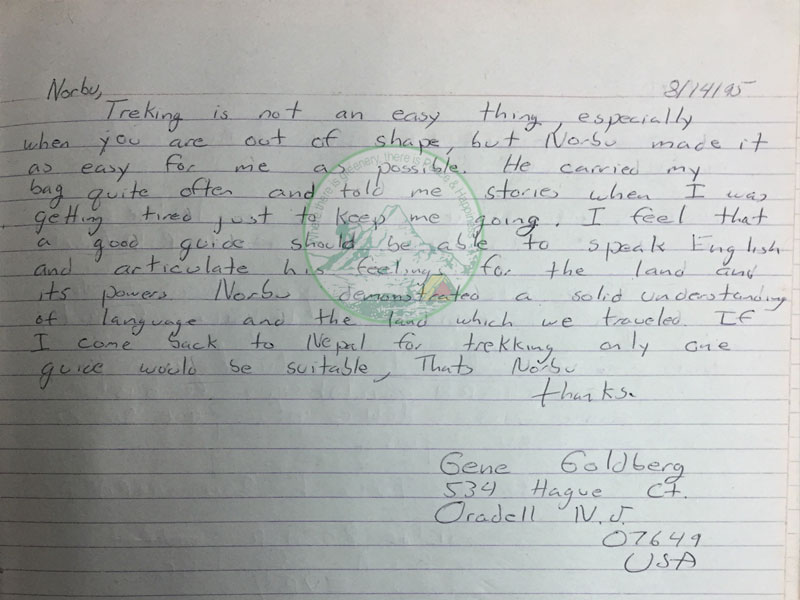 Norbu, 8/14/95
Treking is not an easy thing, especially
when you are out of shape, but Norbu made it
as easy for me as possible. He carried my
bag quite often and told me stories when I was
getting tired just to keep me going. I feel that
a good guide should be able to speak English
and articulate his feelings for the land and
its powers Norbu demonstrated a solid understanding
of language and the land which we traveled. If
I come back to Nepal for trekking only one
guide would be suitable, Thats Norbu
thanks.
Gene Goldberg
534 Hague Ct.
Oradell N.J.
07649
USA